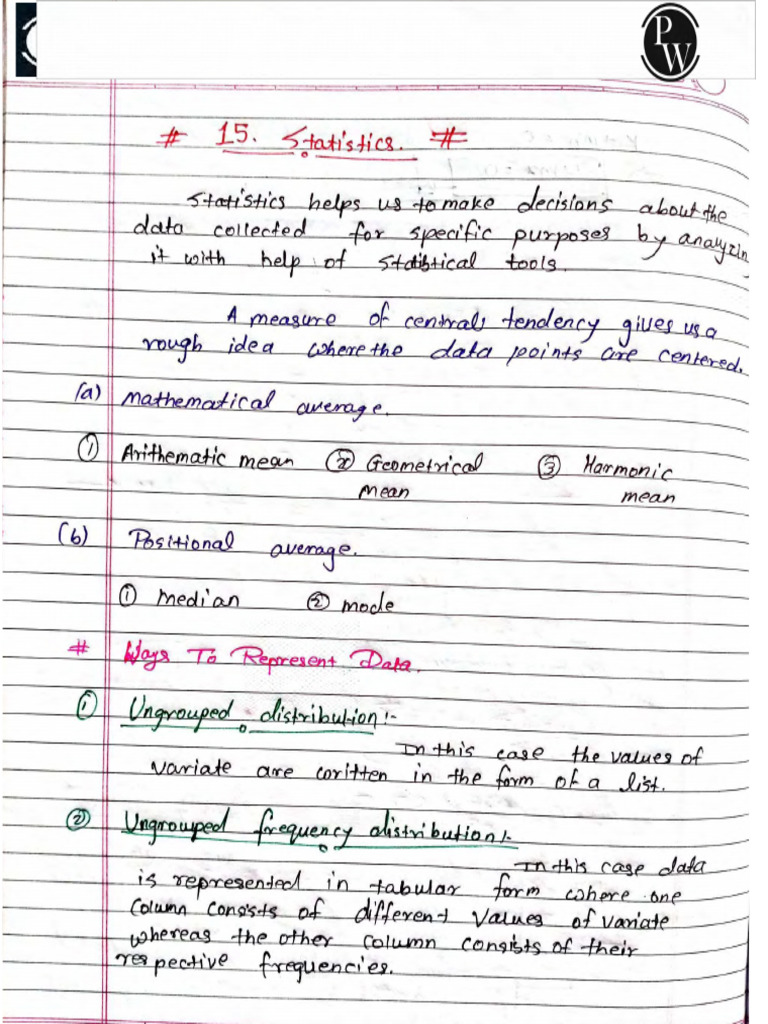 P
W
# 15. Statistics. #
Statistics helps us to make decisions about the
data collected for specific purposes by analyzin
it with help of statistical tools.
A measure of centrals tendency gives us a
rough idea where the data points are centered.
(a) Mathematical average.
① Arithematic mean ② Geometrical ③ Harmonic
mean mean
(b) Positional average.
① median ② mode
# Ways To Represent Data.
① Ungrouped distribution:-
In this case the values of
variate are written in the form of a list.
② Ungrouped frequency distribution:-
In this case data
is represented in tabular form where one
Column consists of different values of variate
whereas the other column consists of their
respective frequencies.